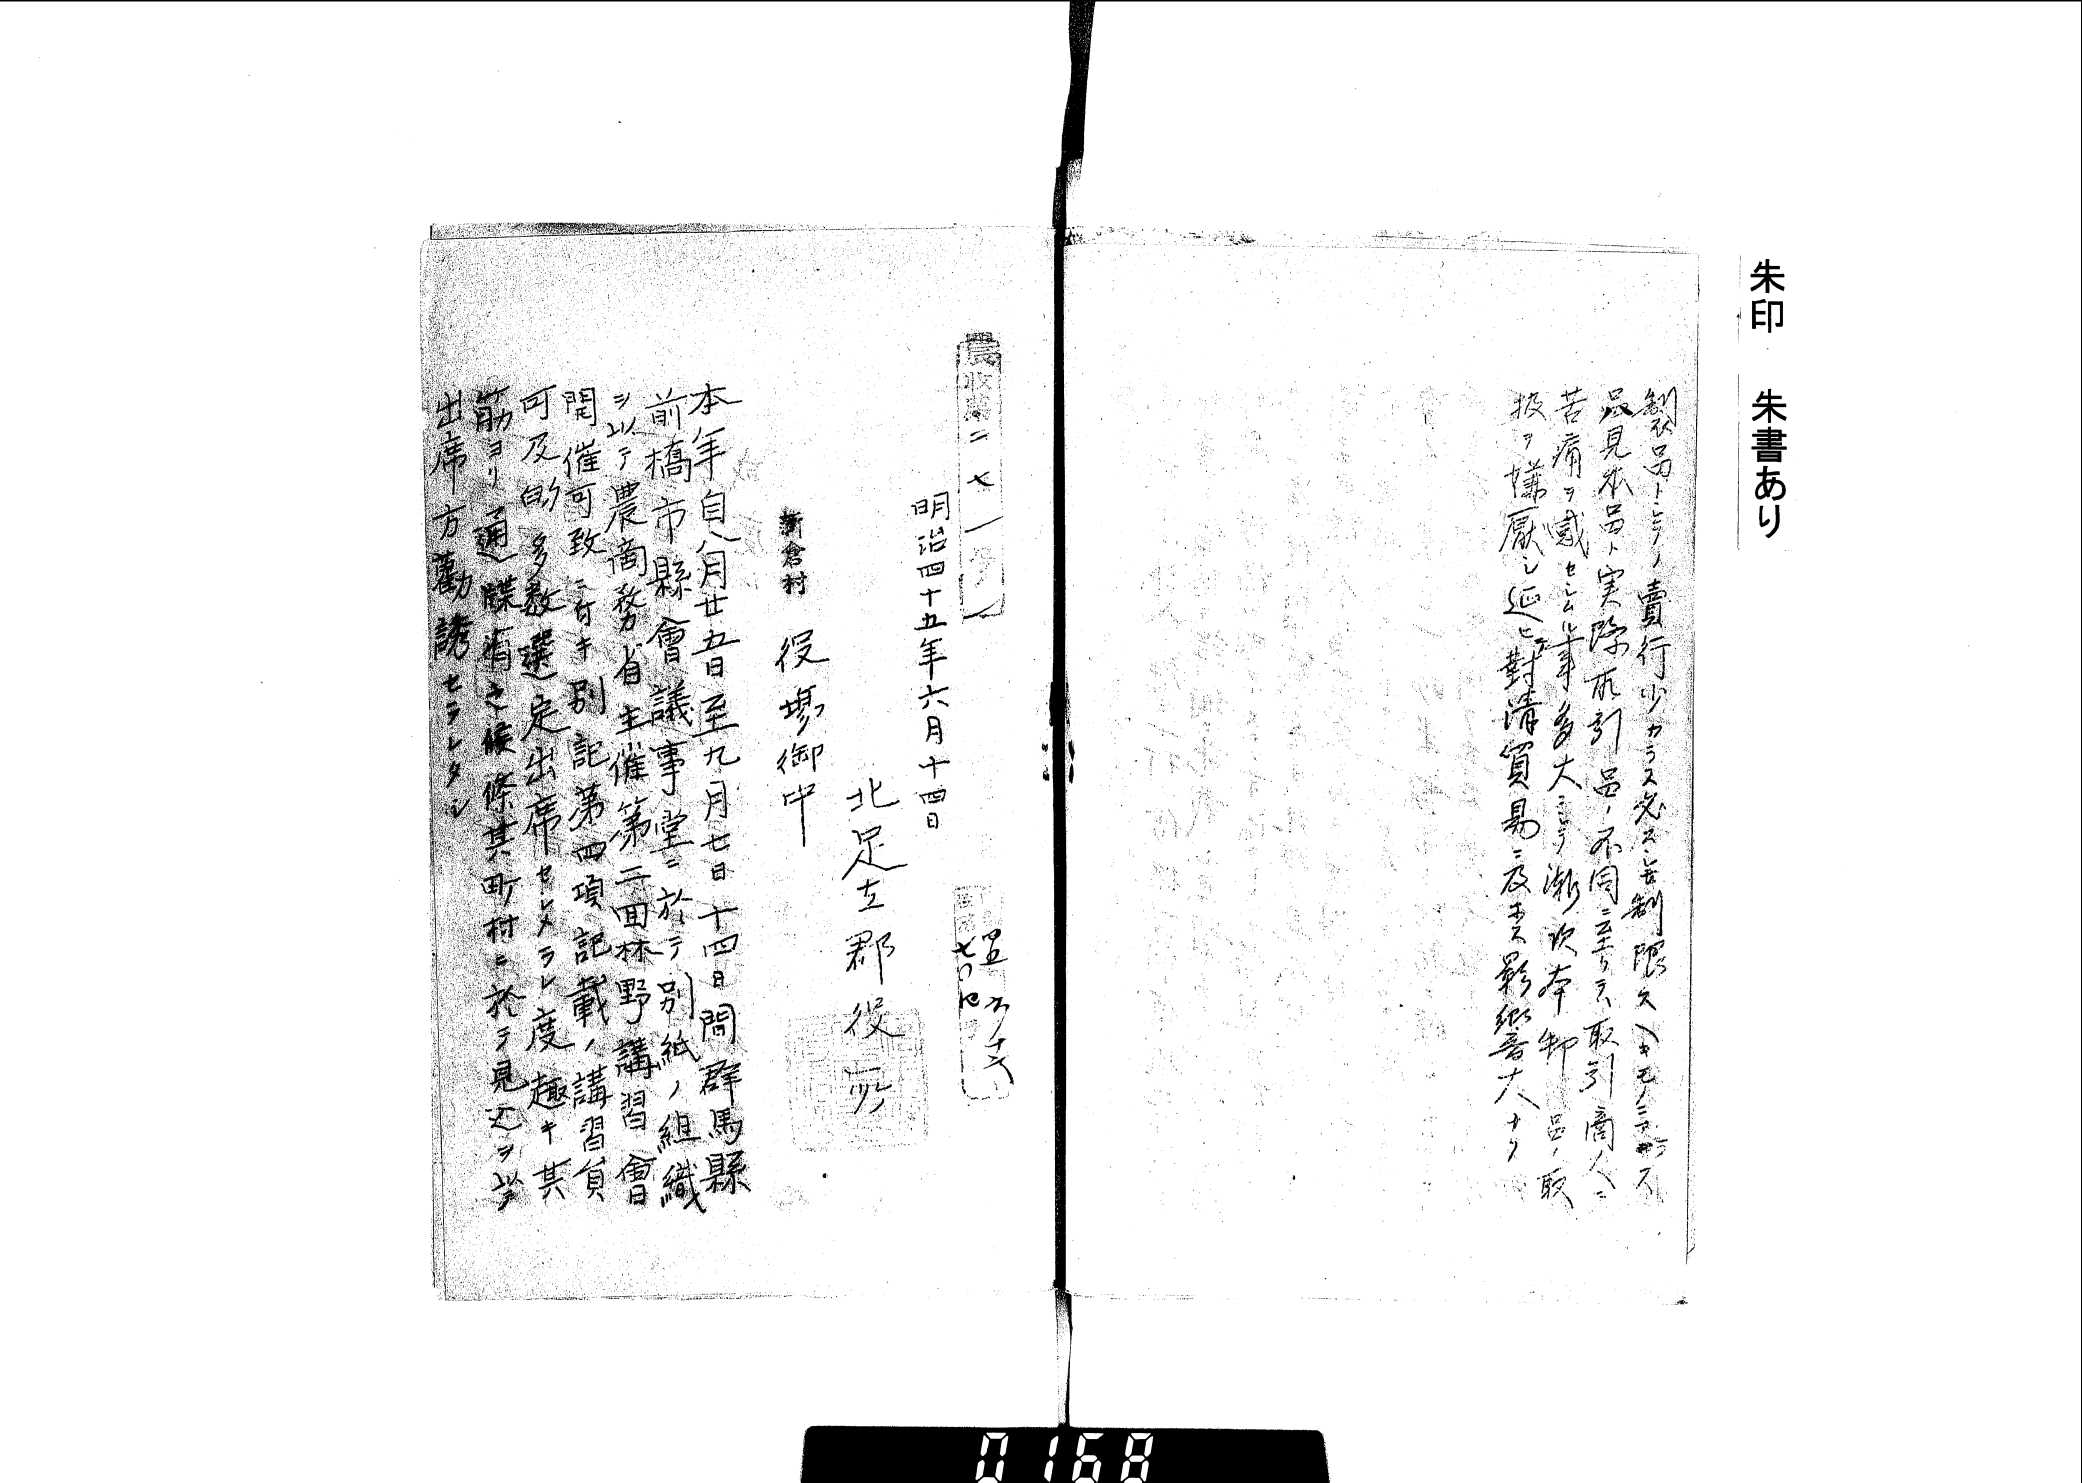 朱印 朱書あり
製品トシテノ賣行少カラス必スシモ制限スヘキモノニアラス
品見本品ト実際取引品ノ不同ニ至リテハ取引商人ニ
苦痛ヲ感セシムル事多大ニシテ漸次本邦品ノ取
扱ヲ嫌厭シ延ヒテ對清貿易ニ及ホス影響大ナリ
農收第二七一号ノ一
明治四十五年六月十四日
北足立郡役所
新倉村 役場御中
本年自八月廿五日至九月七日十四日間群馬縣
前橋市縣會議事堂ニ於テ別紙ノ組織
ヲ以テ農商務省主催第二回林野講習會
開催可致ニ付キ別記第四項記載ノ講習員
可及的多数選定出席セシメラレ度趣キ其
筋ヨリ通牒有之候條其町村ニ於テ見込ヲ以テ
出席方勸誘セラレタシ
0168